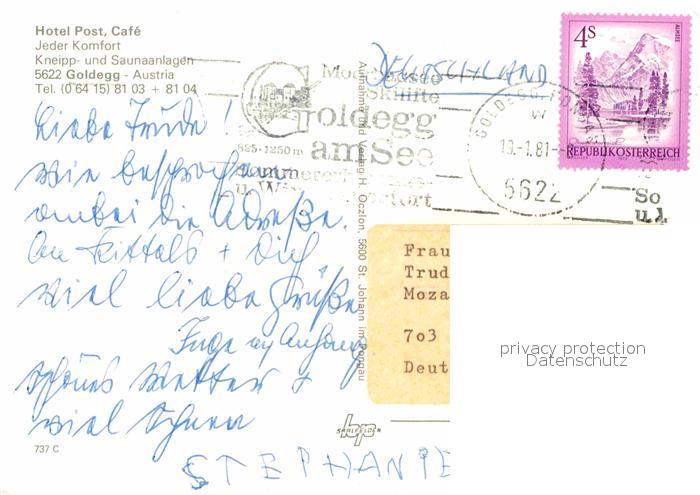 Hotel Post, Café
Jeder Komfort
Kneipp- und Saunaanlagen
5622 Goldegg - Austria
Tel. (0 64 15) 81 03 + 81 04
DEUTSCHLAND
4S
ALMSEE
REPUBLIK ÖSTERREICH
Goldegg
am See
825-1250 m
19.-1.81-
5622
So
Liebe Trude!
wie besprochen
anbei die Adresse.
An Fittals + Dich
viel liebe Grüße
schönes Wetter +
viel Schnee
STEPHANIE
Aufnahme und Verlag H. Oczlon, 5600 St. Johann im Pongau
Frau
Trud
Moza
7o3
Deut
privacy protection
Datenschutz
SAALFELDEN
737 C